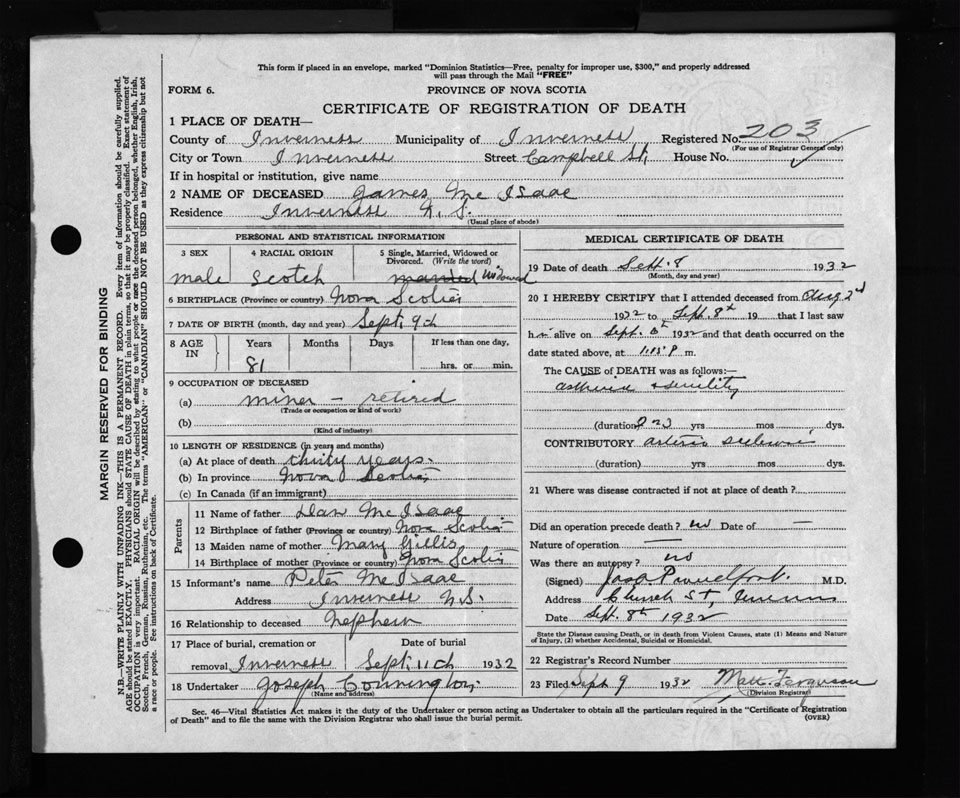 This form if placed in an envelope, marked “Dominion Statistics—Free, penalty for improper use, $300,” and properly addressed
will pass through the Mail “FREE”
FORM 6.
PROVINCE OF NOVA SCOTIA
CERTIFICATE OF REGISTRATION OF DEATH
1 PLACE OF DEATH—
County of Inverness Municipality of Inverness Registered No. 203
(For use of Registrar General only)
City or Town Inverness Street Campbell St, House No.
If in hospital or institution, give name
2 NAME OF DECEASED James Mc Isaac
Residence Inverness N.S.
(Usual place of abode)
PERSONAL AND STATISTICAL INFORMATION
3 SEX 4 RACIAL ORIGIN 5 Single, Married, Widowed or
Divorced. (Write the word)
male Scotch married Widowed
6 BIRTHPLACE (Province or country) Nova Scotia
7 DATE OF BIRTH (month, day and year) Sept. 9th
8 AGE IN Years Months Days If less than one day,
81 hrs. or min.
9 OCCUPATION OF DECEASED
(a) miner – retired
(Trade or occupation or kind of work)
(b)
(Kind of industry)
10 LENGTH OF RESIDENCE (in years and months)
(a) At place of death thirty years.
(b) In province Nova Scotia
(c) In Canada (if an immigrant)
Parents
11 Name of father Dan Mc Isaac
12 Birthplace of father (Province or country) Nova Scotia
13 Maiden name of mother Mary Gillis
14 Birthplace of mother (Province or country) Nova Scotia
15 Informant's name Peter Mc Isaac
Address Inverness N.S.
16 Relationship to deceased Nephew
17 Place of burial, cremation or Date of burial
removal Inverness Sept. 11th 1932
18 Undertaker Joseph Connington
(Name and address)
MEDICAL CERTIFICATE OF DEATH
19 Date of death Sept. 8 1932
(Month, day and year)
20 I HEREBY CERTIFY that I attended deceased from Aug 2d
1932 to Sept. 8th 19 that I last saw
h im alive on Sept. 6th 1932 and that death occurred on the
date stated above, at 1.15 P m.
The CAUSE of DEATH was as follows:—
senility
(duration) yrs mos dys.
CONTRIBUTORY arterio
(duration) yrs mos dys.
21 Where was disease contracted if not at place of death?
Did an operation precede death? no Date of —
Nature of operation —
Was there an autopsy? no
(Signed) M.D.
Address Church St,
Date Sept. 8th 1932
State the Disease causing Death, or in death from Violent Causes, state (1) Means and Nature
of Injury, (2) whether Accidental, Suicidal or Homicidal.
22 Registrar's Record Number
23 Filed Sept 9 1932 Matt. Ferguson
(Division Registrar)
Sec. 46—Vital Statistics Act makes it the duty of the Undertaker or person acting as Undertaker to obtain all the particulars required in the “Certificate of Registration
of Death” and to file the same with the Division Registrar who shall issue the burial permit. (OVER)
MARGIN RESERVED FOR BINDING
N.B.—WRITE PLAINLY WITH UNFADING INK—THIS IS A PERMANENT RECORD. Every item of information should be carefully supplied.
AGE should be stated EXACTLY. PHYSICIANS should STATE CAUSE OF DEATH in plain terms, so that it may be properly classified. Exact statement of
OCCUPATION is very important. RACIAL ORIGIN will be described by stating to what people or race the deceased person belonged, whether English, Irish,
Scotch, French, German, Russian, Ruthenian, etc. The terms “AMERICAN” or “CANADIAN” SHOULD NOT BE USED as they express citizenship but not
a race or people. See instructions on back of Certificate.